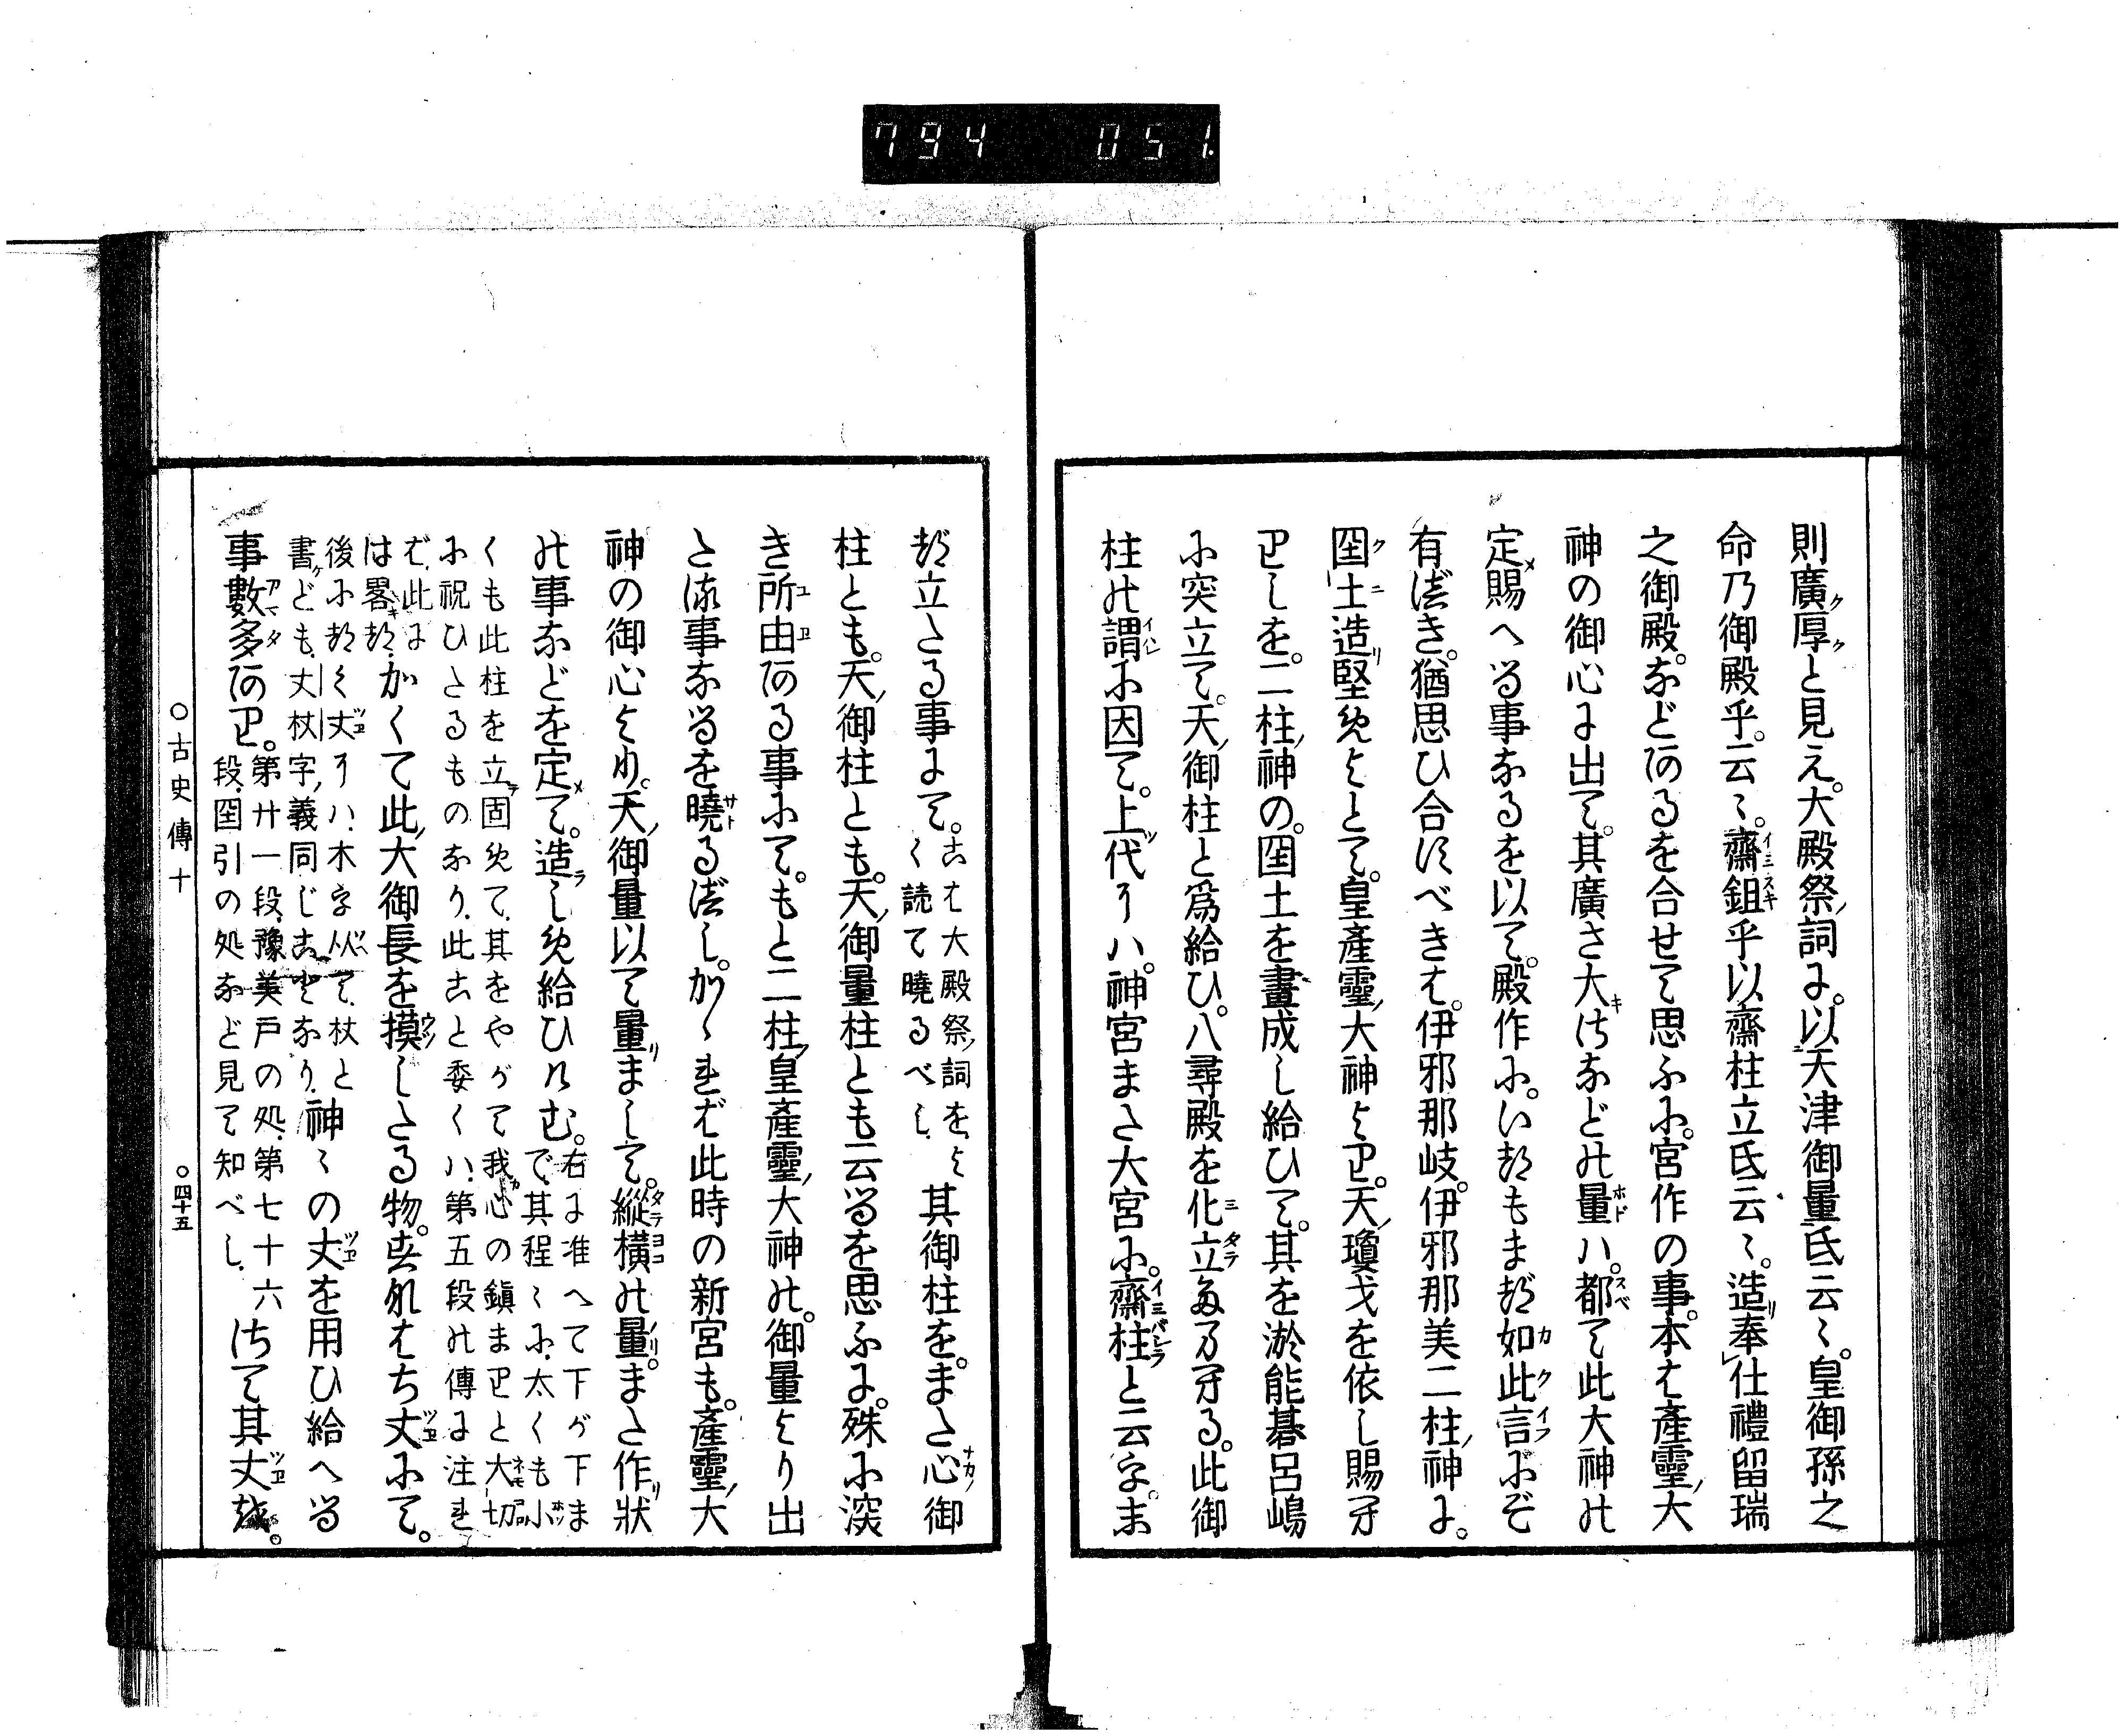 794 051.
則廣厚と見え。大殿祭ノ詞に。以天津御量氐云々。皇御孫之
命乃御殿乎。云々。齋鉏乎以齋柱立氐云々。造奉仕禮留瑞
之御殿。などあるを合せて思ふに。宮作の事。本は產靈ノ大
神の御心に出て。其廣さ大さなどの量ハ。都て此大神の
定賜へる事なるを以て。殿作に。いまもまづ如此言にぞ
有べき。猶思ひ合すべきは。伊邪那岐。伊邪那美二柱ノ神に。
国土造堅めよとて。皇產靈ノ大神より。天ノ瓊戈を依し賜ひ
りしを。二柱ノ神の。国土を畫成し給ひて。其を淤能碁呂嶋
に突立て。天ノ御柱と爲給ひ。八尋殿を化立給ひける。此御
柱の謂に因て。上代にハ。神宮また大宮に。齋柱と云字。ま
づ立たる事にて。こは大殿祭ノ詞を、よ
く読て曉るべし、其御柱を。また心ノ御
柱とも。天ノ御柱とも。天ノ御量柱とも云るを思ふに。殊に深
き所由ある事にて。もと二柱ノ皇產靈ノ大神の。御量より出
たる事なるを曉るべし。かゝれば此時の新宮も。產靈ノ大
神の御心より。天ノ御量以て量まして。縱橫の量。また作狀
の事などを定て。造らしめ給ひけむ。右に准へて下が下ま
で、其程々に、太くも小
くも此柱を立固めて、其をやがて我心の鎭まりと大切
に祝ひたるものなり、此こと委くハ、第五段の傳に注れ
ば、此に
は畧きつ、かくて此ノ大御長を摸したる物。すなはち丈にて。
後にまた丈にハ、木字从て、杖と
書けども、丈杖字ノ義同じことなり、神々の丈を用ひ給へる
事數多あり。第廿一段、豫美戸の処、第七十六
段、国引の処など見て知べし、さて其丈を。
○古史傳十
○四十五